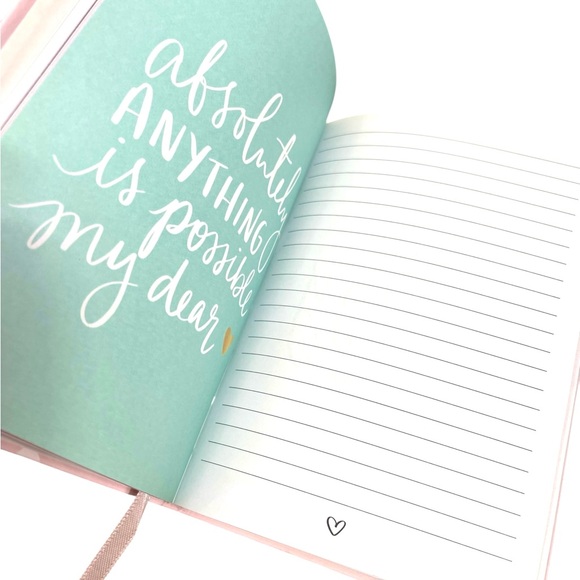 absolutely
ANYTHING
is possible
my dear